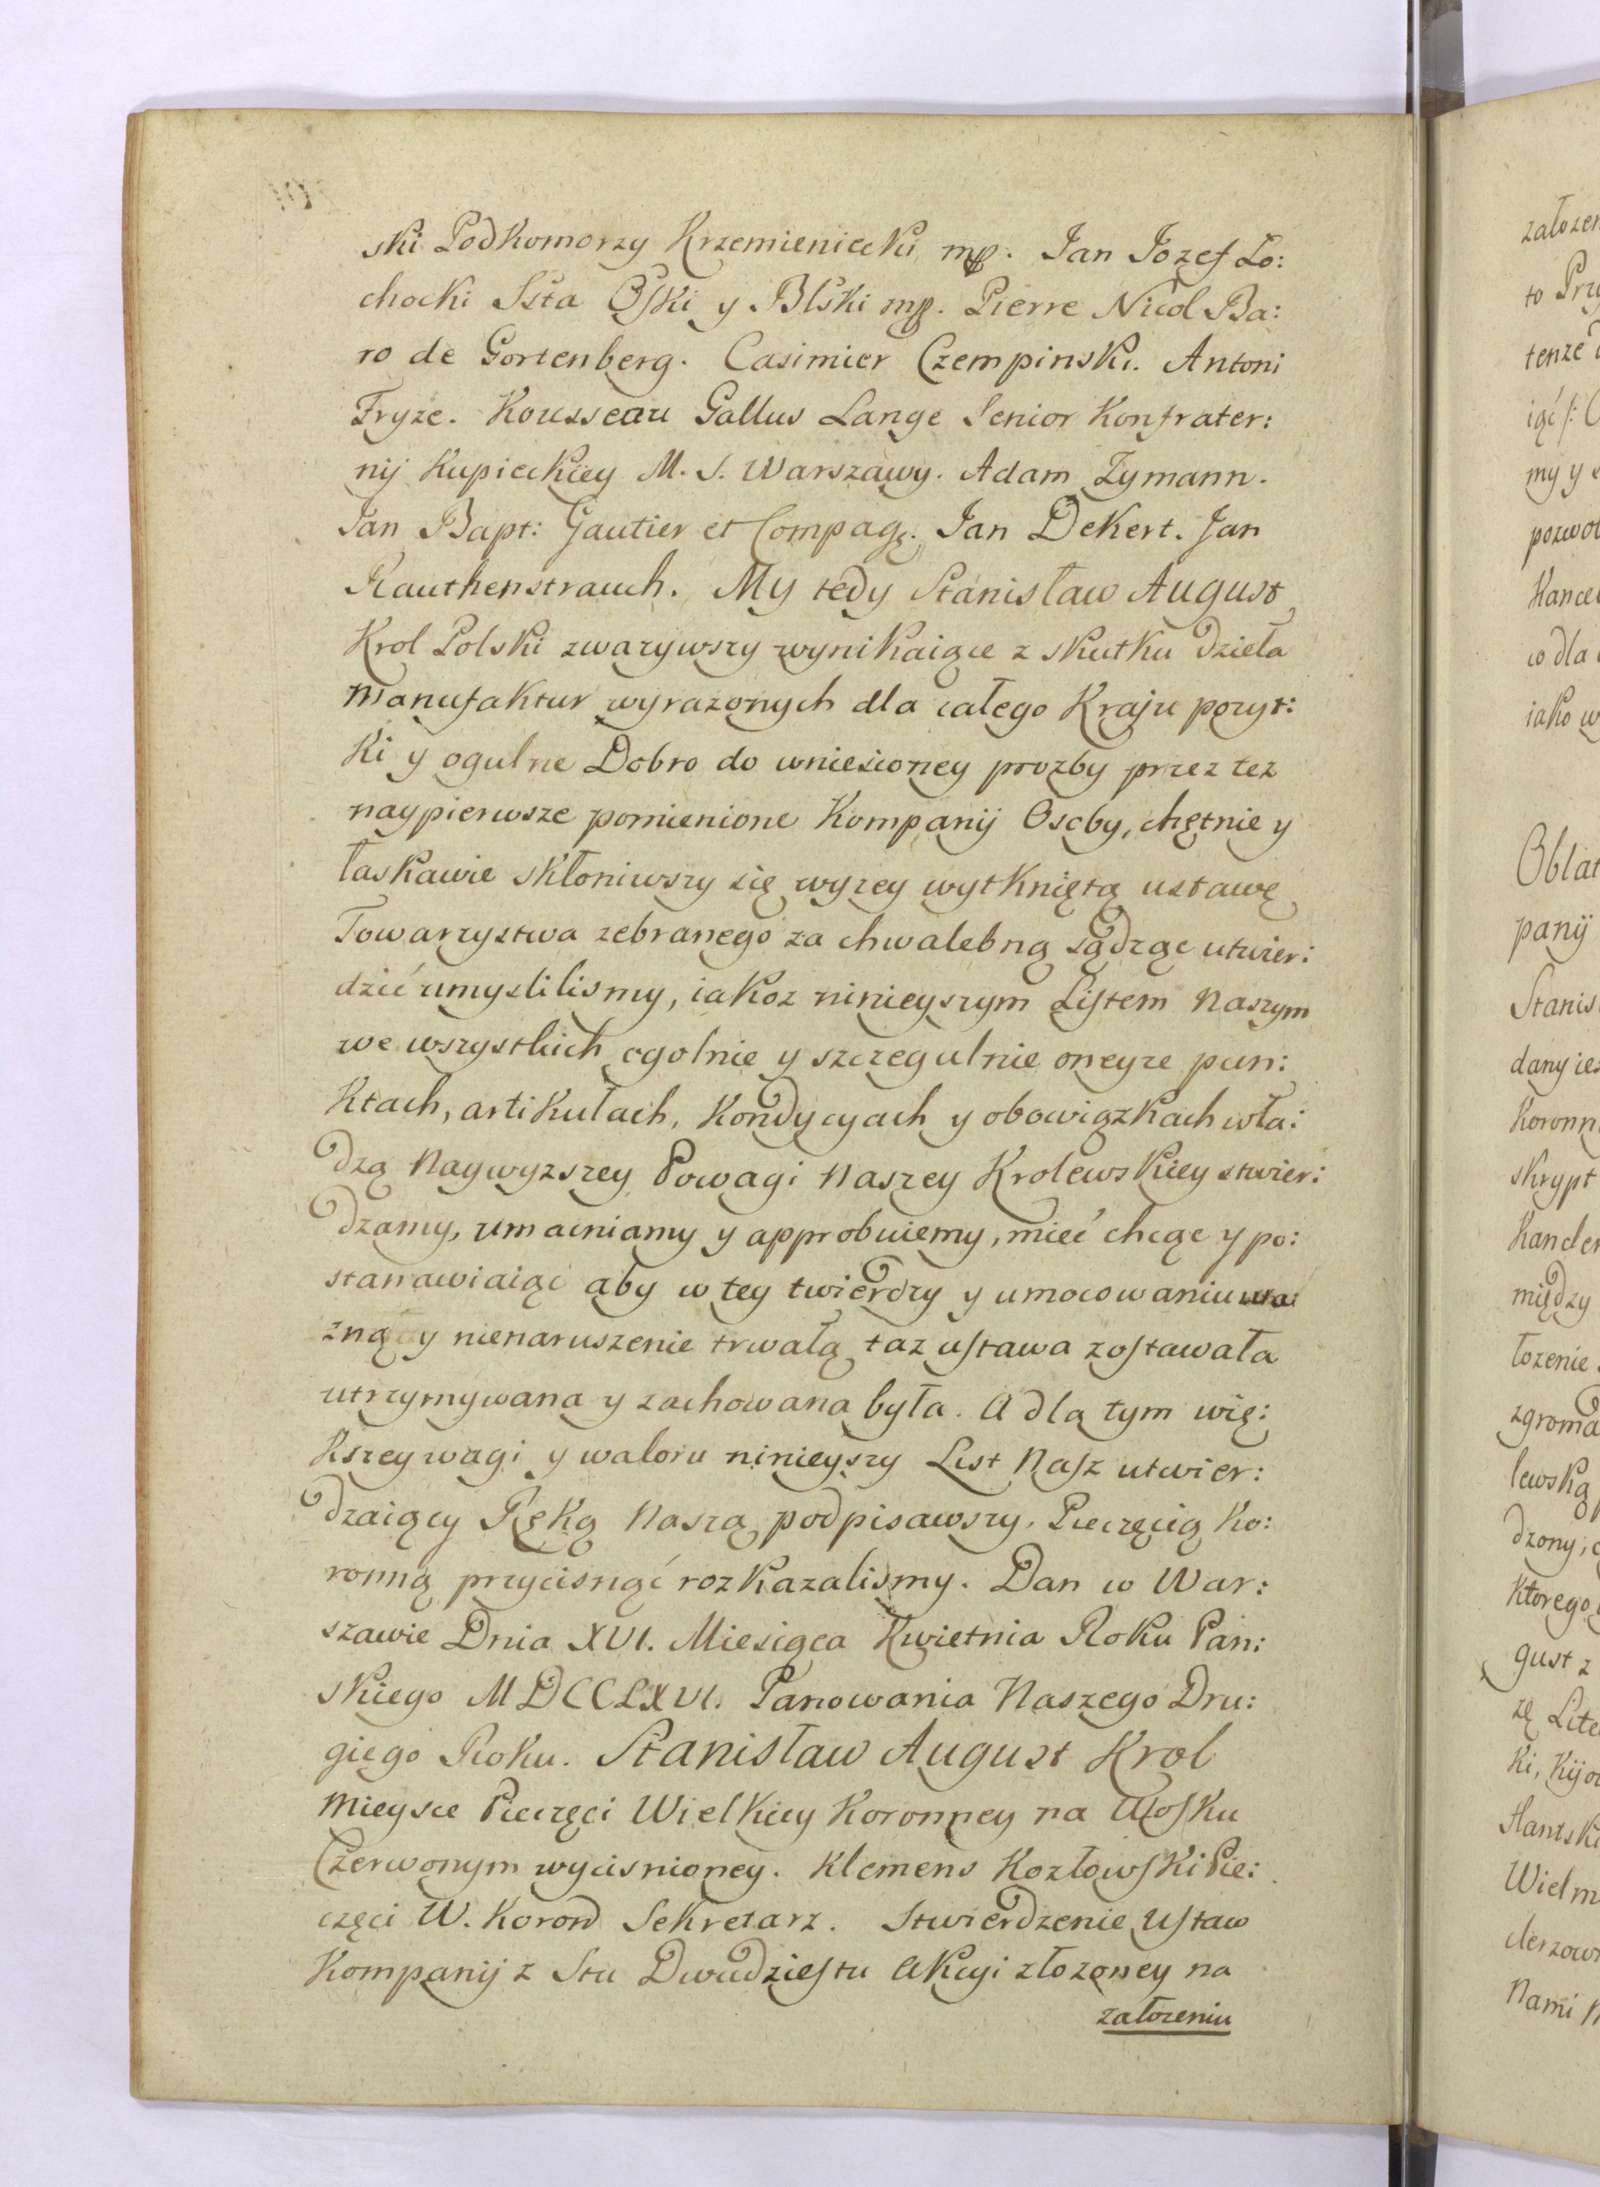 ski Podkomorzy Krzemieniecki mp. Jan Jozef Lo:
chocki Ssta Oski y Blski mp. Pierre Nicol Ba:
ro de Gortenberg. Casimier Czempinski. Antoni
Fryze. Rousseau Gallus Lange Senior Konfrater:
nij Kupieckiey M. S. Warszawy. Adam Zymann.
Jan Bapt: Gautier et Compag. Jan Dekert. Jan
Rauthenstrauch. My tedy Stanisław August
Krol Polski zwazywszy wynikaiące z skutku dzieła
Manufaktur wyrazonych dla całego Kraju pozyt:
ki y ogulne Dobro do wniesioney prozby przez tez
naypierwsze pomienione Kompanij Osoby, chętnie y
łaskawie skłoniwszy się wyzey wytkniętą ustawę
Towarzystwa zebranego za chwalebną sądząc utwier:
dzić umyslilismy, iakoz ninieyszym Listem Naszym
we wszystkich ogolnie y szczegulnie oneyze pun:
ktach, artikułach, Kondycyach y obowiązkach wła:
dzą Naywyzszey Powagi Naszey Krolewskiey stwier:
dzamy, umacniamy y approbuiemy, mieć chcąc y po:
stanawiaiąc aby w tey twierdzy y umocowaniu wa:
zną y nienaruszenie trwałą taz ustawa zostawała
utrzymywana y zachowana była. A dla tym wię:
kszey wagi y waloru ninieyszy List Nasz utwier:
dzaiący Ręką Naszą podpisawszy, Pieczęcią Ko:
ronną przycisnąć rozkazalismy. Dan w War:
szawie Dnia XVI. Miesiąca Kwietnia Roku Pań:
skiego MDCCLXVI. Panowania Naszego Dru:
giego Roku. Stanisław August Krol
Mieysce Pieczęci Wielkiey Koronney na Wosku
Czerwonym wycisnioney. Klemens Kozłowski Pie:
częci W. Koron Sekretarz. Stwierdzenie Ustaw
Kompanij z Stu Dwudziestu Akcyi złozoney na
załozeniu